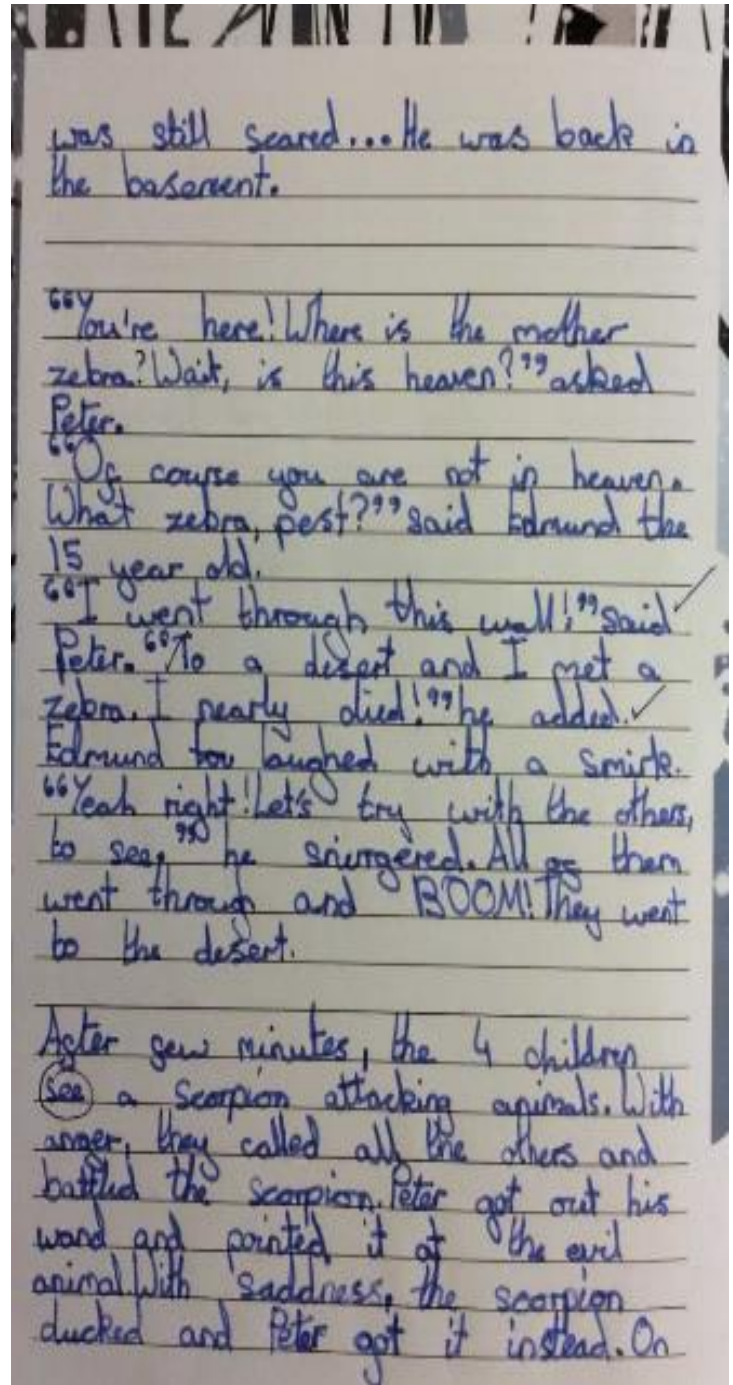 was still scared... He was back in
the basement.
“You're here! Where is the mother
zebra? Wait, is this heaven?” asked
Peter.
“Of course you are not in heaven.
What zebra, pest?” said Edmund the
15 year old.
“I went through this wall!” said
Peter. “To a desert and I met a
zebra. I nearly died!” he added.
Edmund laughed with a smirk.
“Yeah right! Let's try with the others,
to see,” he sniurgered. All of them
went through and BOOM! They went
to the desert.
After few minutes, the 4 children
see a scorpion attacking animals. With
anger, they called all the others and
battled the scorpion. Peter got out his
wand and pointed it at the evil
animal. With saddness, the scorpion
ducked and Peter got it instead. On